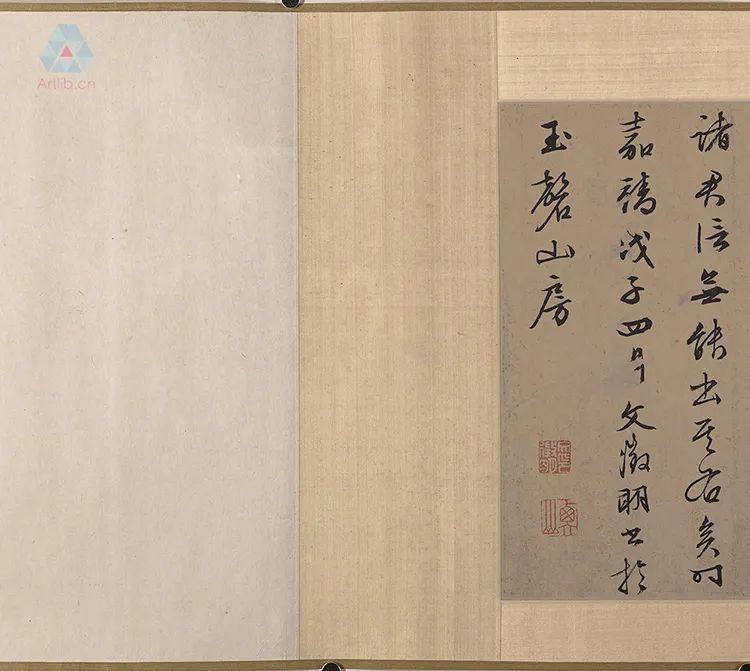 諸君信無能出其右矣時
嘉靖戊子四月文徵明書於
玉磬山房
衡山
Artlib.cn